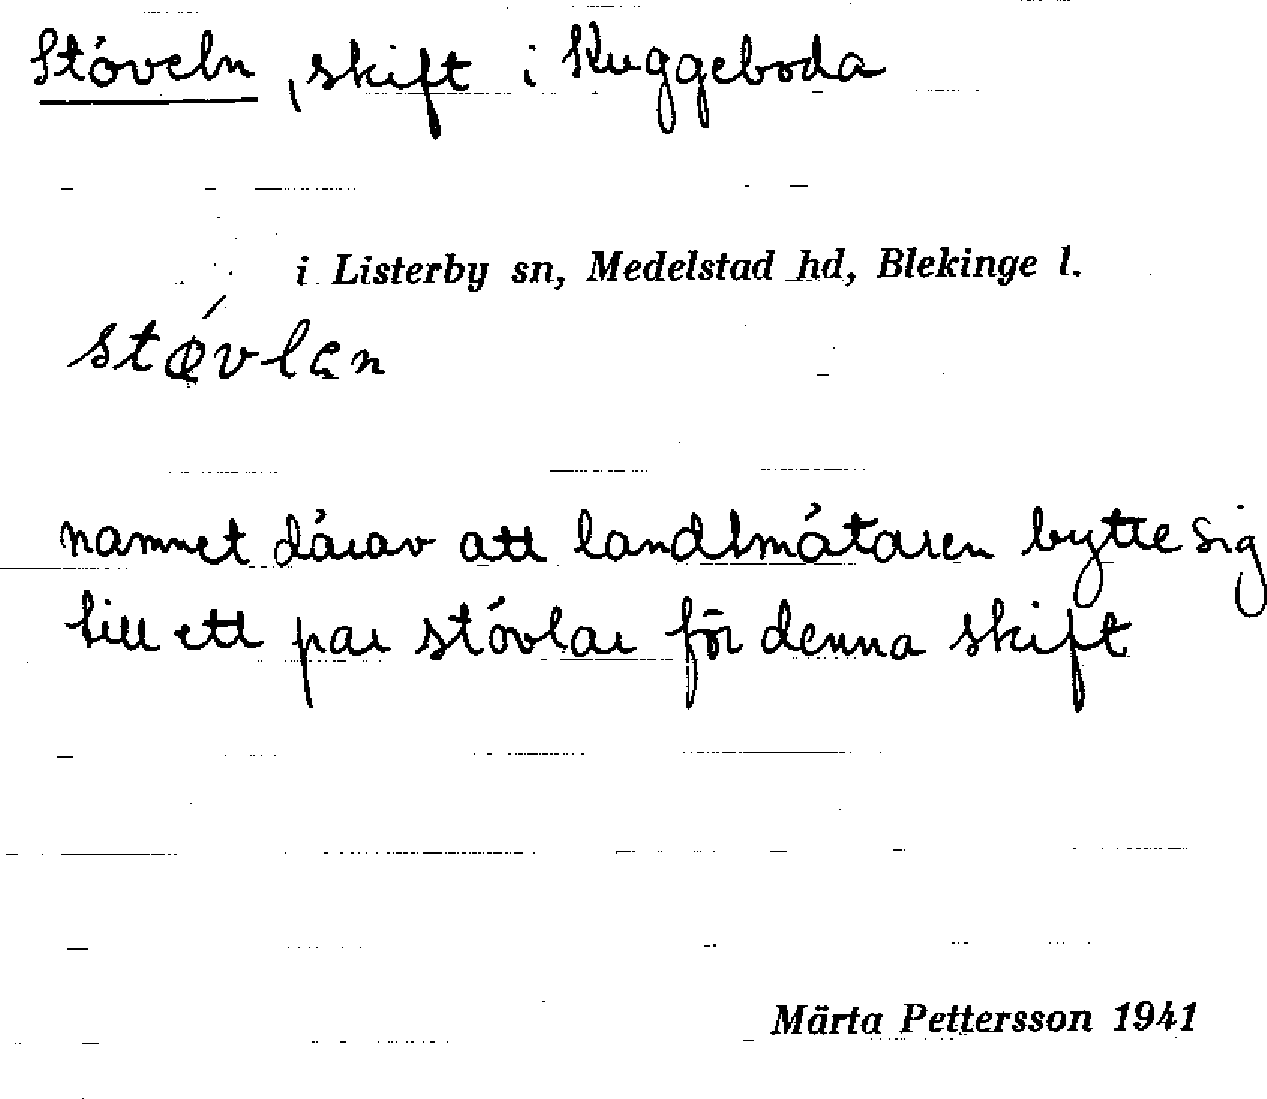 Stöveln, skift i Kuggeboda
i Listerby sn, Medelstad hd, Blekinge l.
støvlen
namnet därav att landtmätaren bytte sig
till ett par stövlar för denna skift
Märta Pettersson 1941